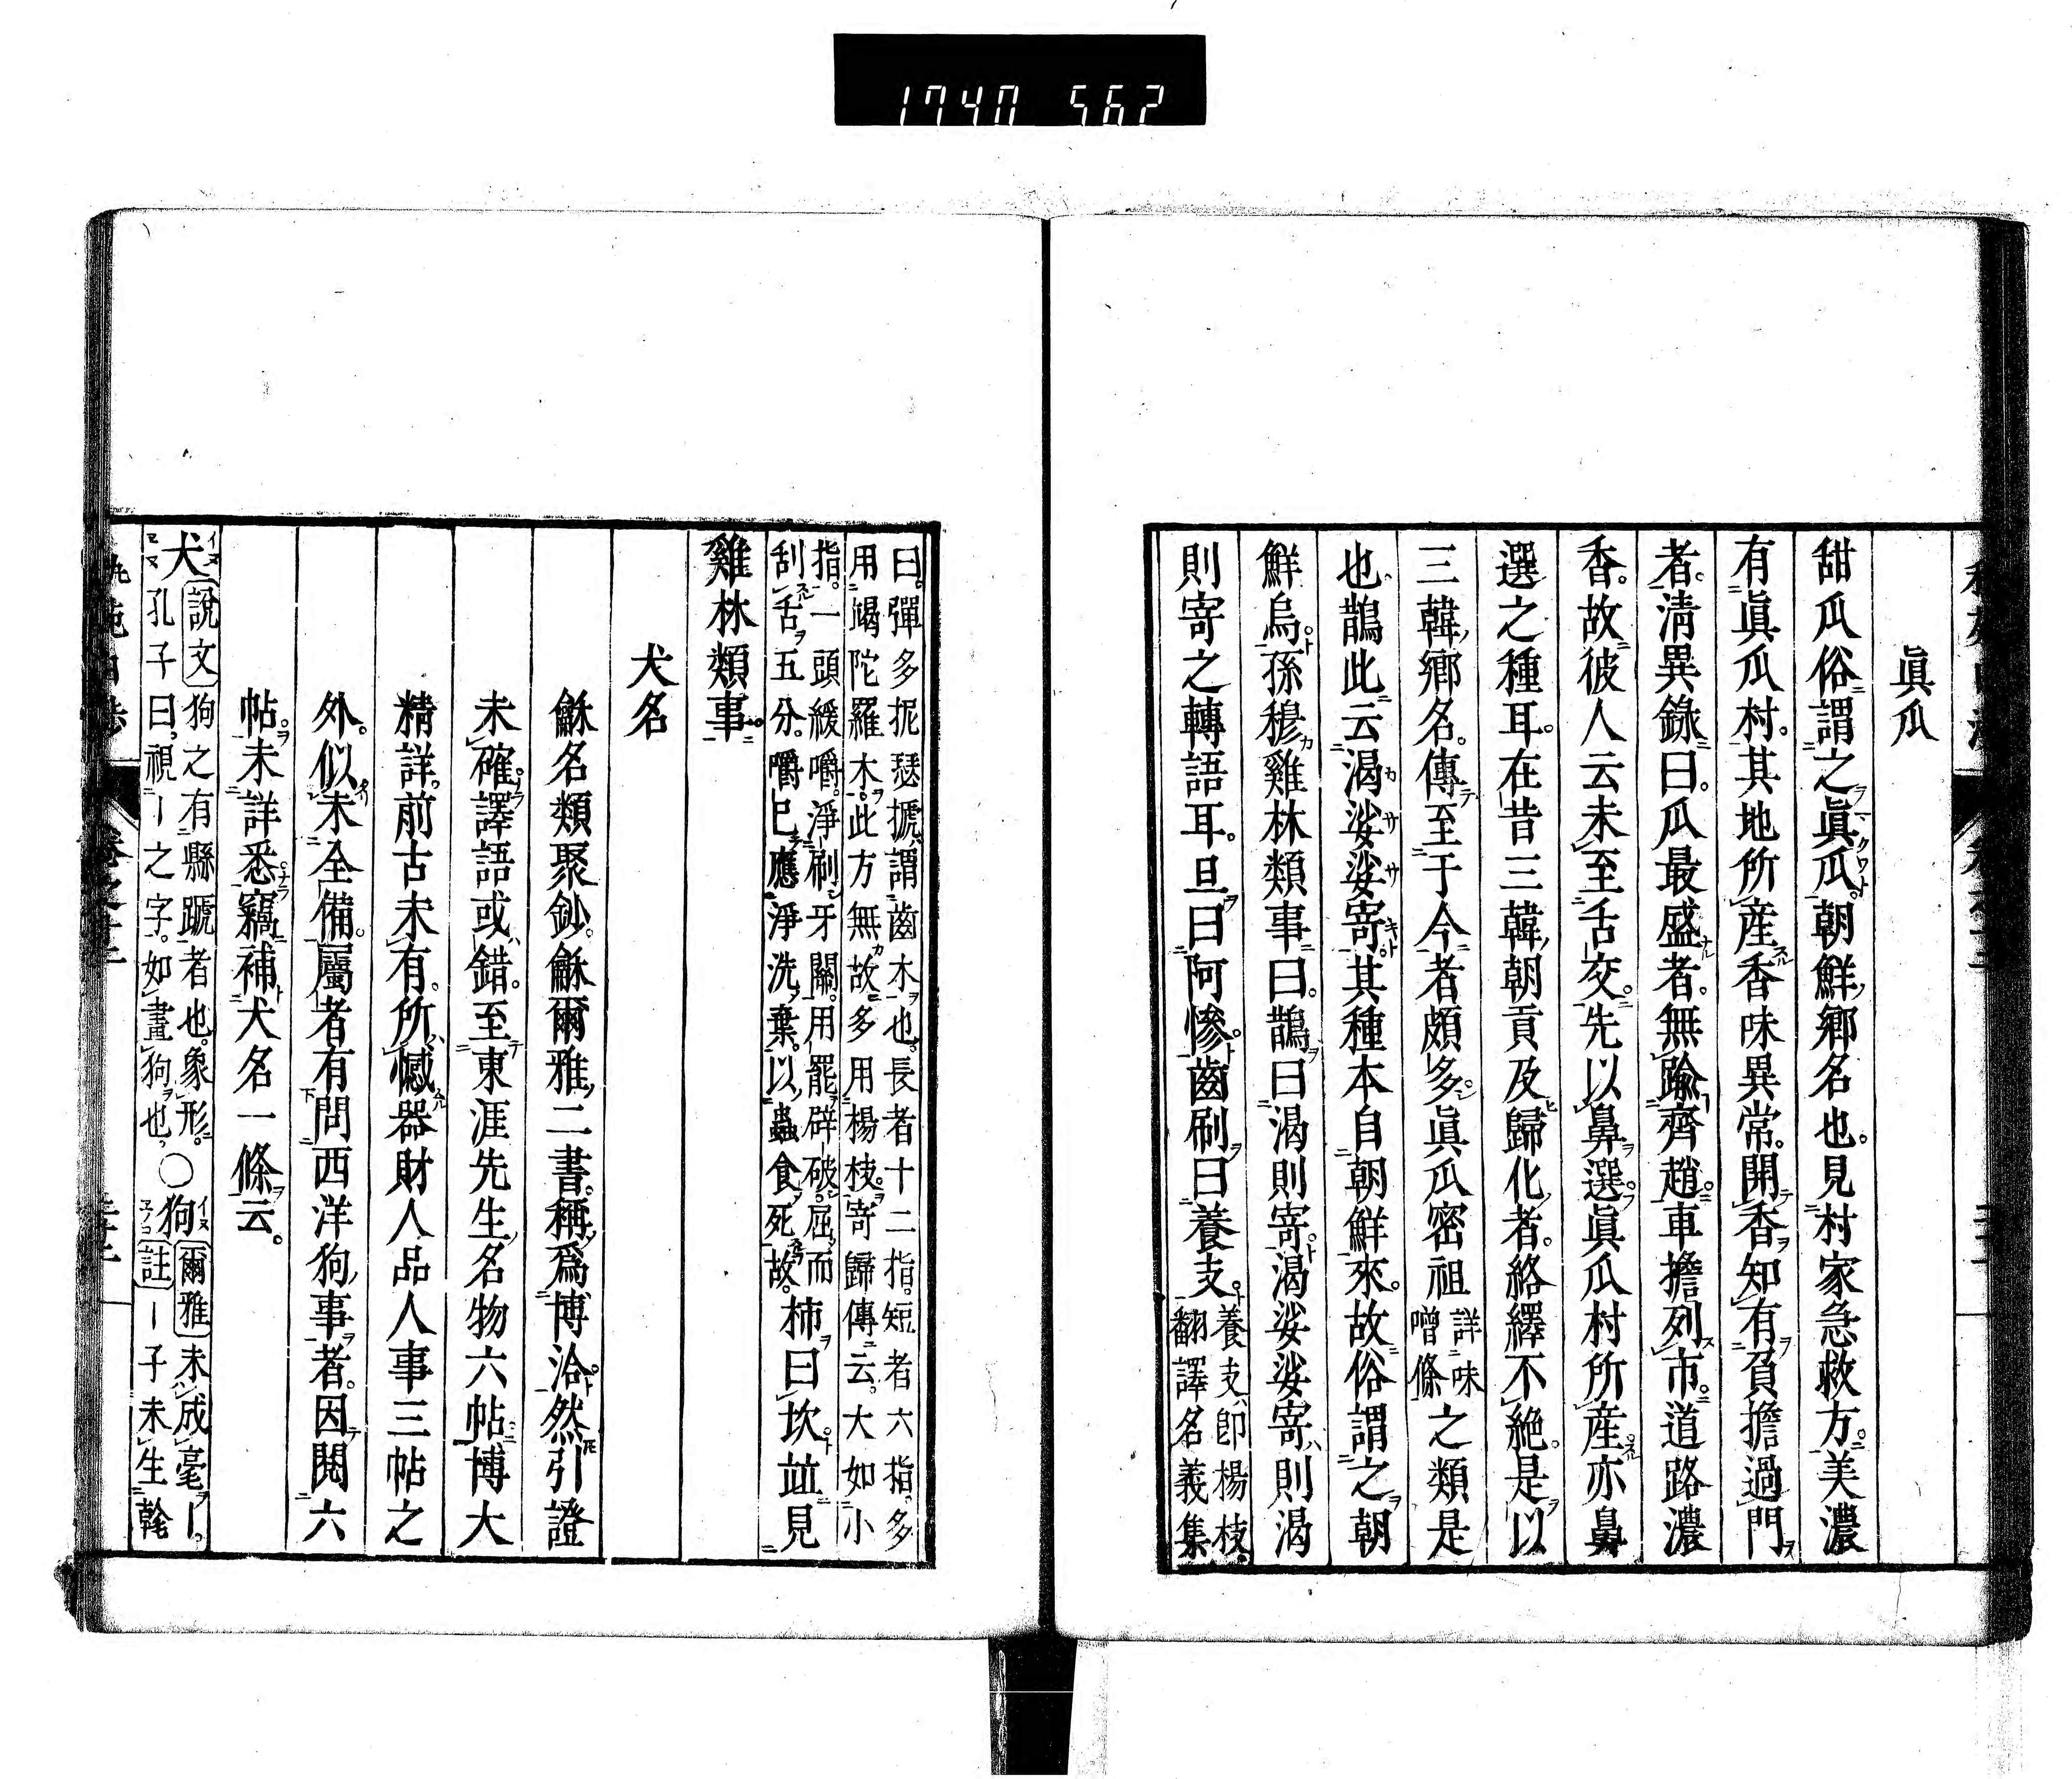 1740 562
眞瓜
甜瓜俗謂之眞瓜。朝鮮鄕名也。見村家急救方。美濃
有眞瓜村。其地所產香味異常。開香知有負擔過門
者。淸異錄曰。瓜最盛者。無踰齊趙。車擔列市。道路濃
香。故彼人云未至舌交。先以鼻選。眞瓜村所產亦鼻
選之種耳。在昔三韓朝貢及歸化者。絡繹不絕。是以
三韓鄕名。傳至于今者頗多。眞瓜密祖
詳味
噌條
之類是
也。鵲此云渴娑娑寄。其種本自朝鮮來。故俗謂之朝
鮮烏。孫穆雞林類事曰。鵲曰渴則寄。渴娑娑寄則渴
則寄之轉語耳。旦曰阿慘。齒刷曰養支。
養支卽楊枝。
翻譯名義集
曰。彈多抳瑟搋。謂齒木也。長者十二指。短者六指。多
用竭陀羅木。此方無故。多用楊枝。寄歸傳云。大如小
指。一頭緩嚼。淨刷牙關。用罷辟破。屈而
刮舌。五分。嚼已應淨洗棄。以蟲食死故。
柿曰坎。並見
雞林類事。
犬名
龢名類聚鈔。龢爾雅二書。稱爲博洽。然引證
未確。譯語或錯。至東涯先生名物六帖。博大
精詳。前古未有。所憾器財人品人事三帖之
外。似未全備。屬者有問西洋狗事者。因閱六
帖。未詳悉。竊補犬名一條云。
犬
イヌ
說文 狗之有縣蹏者也。象形。
孔子曰。視｜之字。如畫狗也。
○狗
イヌ
エノコ
爾雅 未成毫｜。
註 ｜子未生𠦝
卷之二